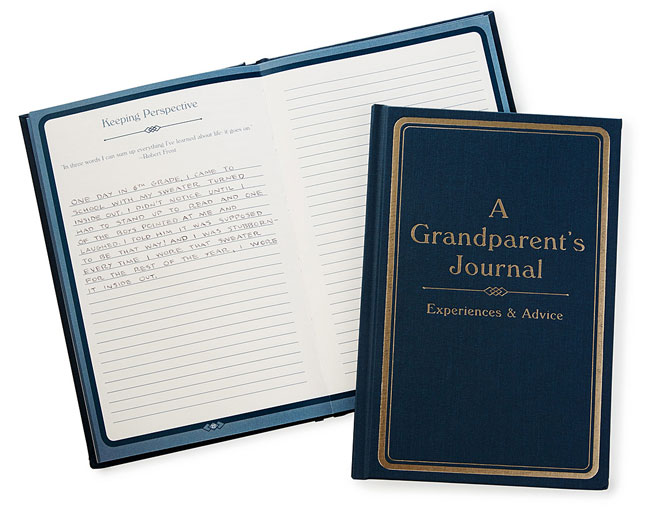 Keeping Perspective
"In three words I can sum up everything I've learned about life: it goes on."
–Robert Frost
ONE DAY IN 6TH GRADE, I CAME TO
SCHOOL WITH MY SWEATER TURNED
INSIDE OUT. I DIDN'T NOTICE UNTIL I
HAD TO STAND UP TO READ AND ONE
OF THE BOYS POINTED AT ME AND
LAUGHED. I TOLD HIM IT WAS SUPPOSED
TO BE THAT WAY! AND I WAS STUBBORN-
EVERY TIME I WORE THAT SWEATER
FOR THE REST OF THE YEAR, I WORE
IT INSIDE OUT.
A
Grandparent's
Journal
Experiences & Advice